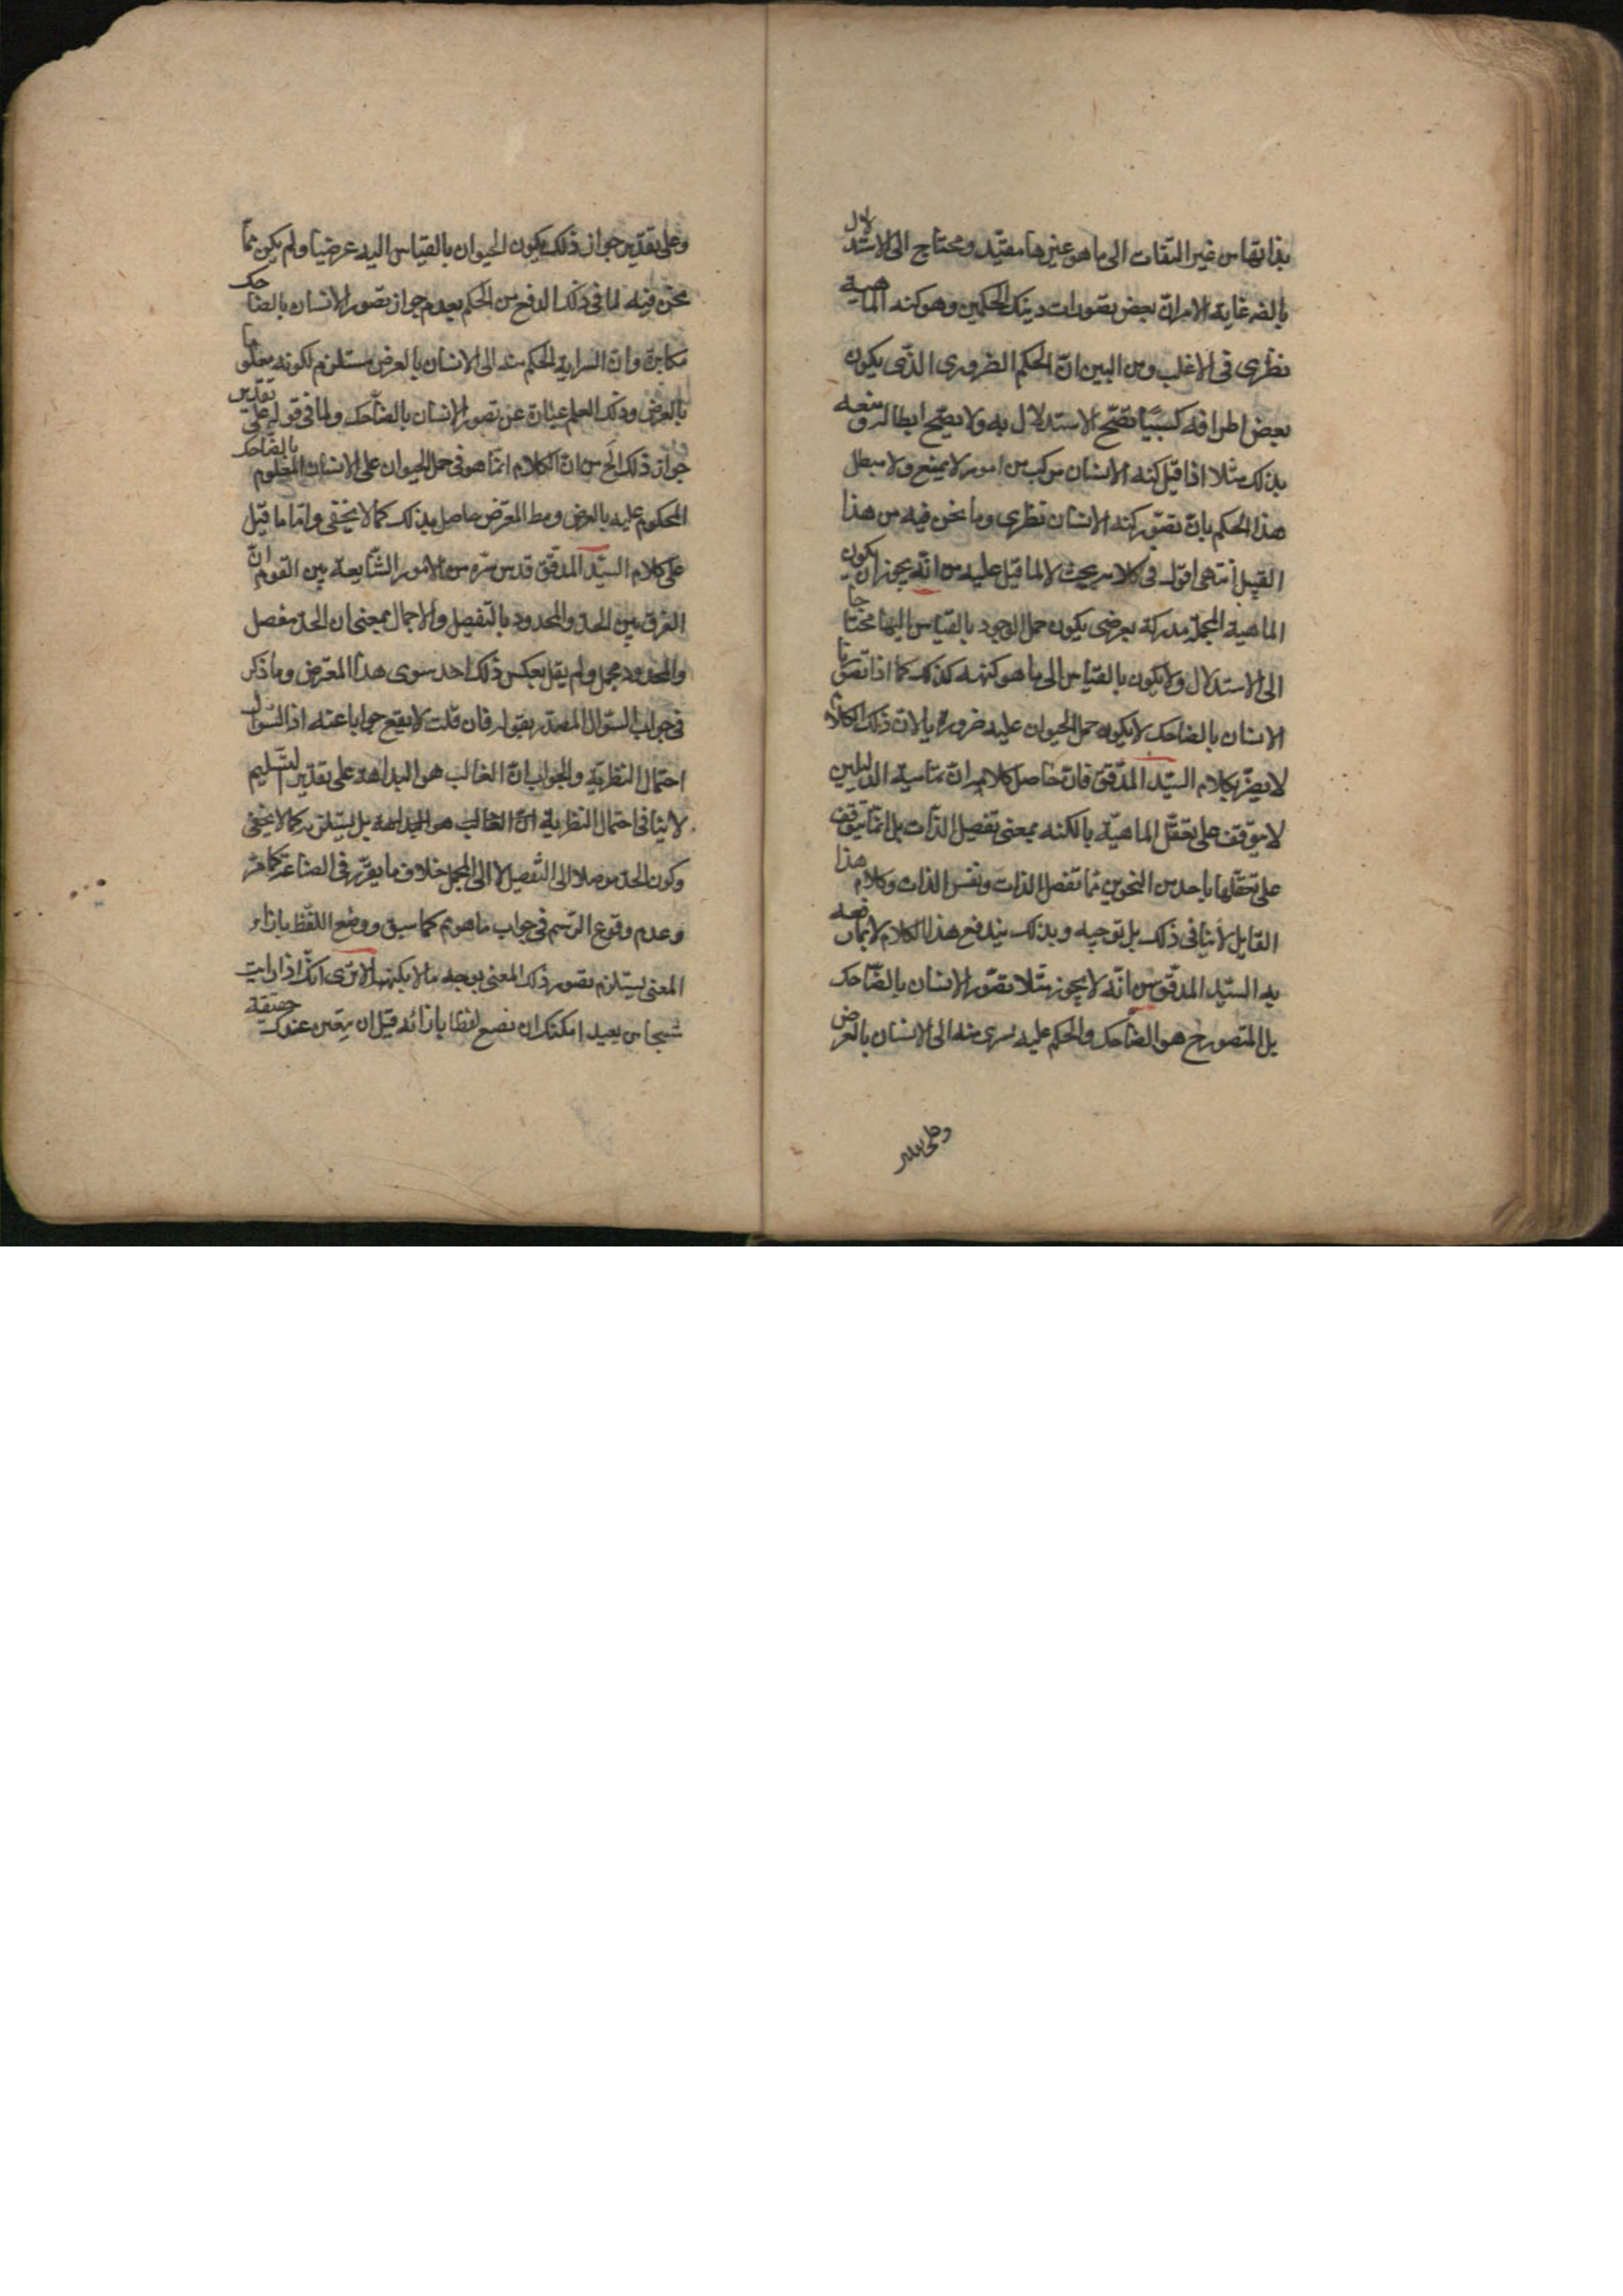 بذاتها من غير التفات الى ما هو عينها مفيد ومحتاج الى الاستدلال
بالضر غاية الامر ان بعض تصورات دينك الحكمين وهو كنه الماهية
نظرى فى الاغلب ومن البين ان الحكم الضرورى الذى يكون
بعض اطرافه كسبيا تصح الاستدلال به ولا يصح ابطاله ومنعه
بذلك مثلا اذا قيل كنه الانسان مركب من امور لا يمنع ولا يبطل
هذا الحكم بان تصور كنه الانسان نظرى وما نحن فيه من هذا
القبيل انتهى اقول فى كلامه بحث لا لما قيل عليه من انه يجوز ان يكون
الماهية المجملة مدركة بعرضى يكون حمل الوجود بالقياس اليها محتاجا
الى الاستدلال ولا يكون بالقياس الى ما هو كنهه كذلك كما اذا تصورنا
الانسان بالضاحك لا يكون حمل الحيوان عليه ضروريا لان ذلك الكلام
لا يضر بكلام السيد المدقق فان حاصل كلامه ان تمامية الدليلين
لا يتوقف على تعقل الماهية بالكنه بمعنى تفصيل الذات بل انما يتوقف
على تعقلها باحد من النحوين تفصيل الذات ونفس الذات وكلام هذا
القايل لا ينافى ذلك بل توجيه وبذلك يندفع هذا الكلام لا بما دفعه
به السيد المدقق من انه لا يجوز مثلا تصور الانسان بالضاحك
بل المتصور ح هو الضاحك والحكم عليه يسرى منه الى الانسان بالعرض
وعلى تقدير
وعلى تقدير جواز ذلك يكون الحيوان بالقياس اليه عرضيا ولم يكن مما
نحن فيه لما فى ذلك الدفع من الحكم بعدم جواز تصور الانسان بالضاحك
مكابرة وان السراية الحكم منه الى الانسان بالعرض مستلزم لكونه معلوما
بالعرض وذلك العلم عبارة عن تصور الانسان بالضاحك ولما فى قوله على تقدير
جواز ذلك الخ من ان الكلام انما هو فى حمل الحيوان على الانسان المعلوم بالضاحك
المحكوم عليه بالعرض ومط المعترض حاصل بذلك كما لا يخفى واما ما قيل
على كلام السيد المدقق قدس سره من الامور الشايعة بين القوم ان
الفرق بين الحد والمحدود بالتفصيل والاجمال بمعنى ان الحد مفصل
والمحدود مجمل ولم يقل بعكس ذلك احد سوى هذا المعترض وما ذكر
فى جواب السؤال المصدر بقوله فان قلت لا يقع جوابا عنه اذ السؤال
احتمال النظرية والجواب ان الغالب هو البداهة على تقدير التسليم
لا ينافى احتمال النظرية ان الغالب هو البداهة بل يستلزمه كما لا يخفى
وكون الحد موصلا الى التفصيل لا الى المجمل خلاف ما يقرر فى الصناعة كما مر
وعدم وقوع الرسم فى جواب ما هو تم كما سبق ووضع اللفظ بازاء
المعنى يستلزم تصور ذلك المعنى بوجه ما لا بكنهه الا ترى انك اذا رايت
شبحا من بعيد امكنك ان تضع لفظا بازائه قبل ان يتعين عندك حقيقة